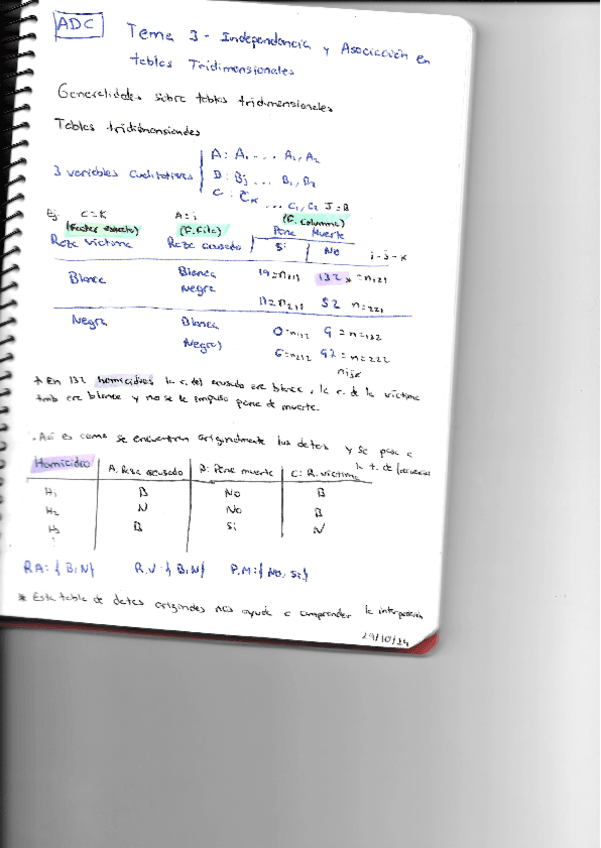 ADC
Tema 3 - Independencia y Asociación en
tablas Tridimensionales
Generalidades sobre tablas tridimensionales
Tablas tridimensionales
3 variables cualitativas
A: Ai ... A1, A2
B: Bj ... B1, B2
C: Ck ... C1, C2
Ej C=K A=i J=B
(Factor estrato) (F. Fila) (F. Columna)
Raza víctima Raza acusado Pena Muerte
Si No i-j-k
Blanca Blanca 19=n111 132* = n121
Negra 11=n211 52 n=221
Negra Blanca 0=n112 9 = n=122
Negra) 6=n212 97 = n=222
nijk
* En 132 homicidios la r. del acusado era blanca, la r. de la víctima
tmb era blanca y no se le impuso pena de muerte.
. Así es como se encuentran originalmente los datos y se pasa a
la t. de
Homicidio A. Raza acusado B: Pena muerte C: R. víctima
H1 B No B
H2 N No B
H3 B Si N
RA: {B, N} R.V: {B, N} P.M: {No, Si}
* Esta tabla de datos originales nos ayuda a comprender la
29/10/24